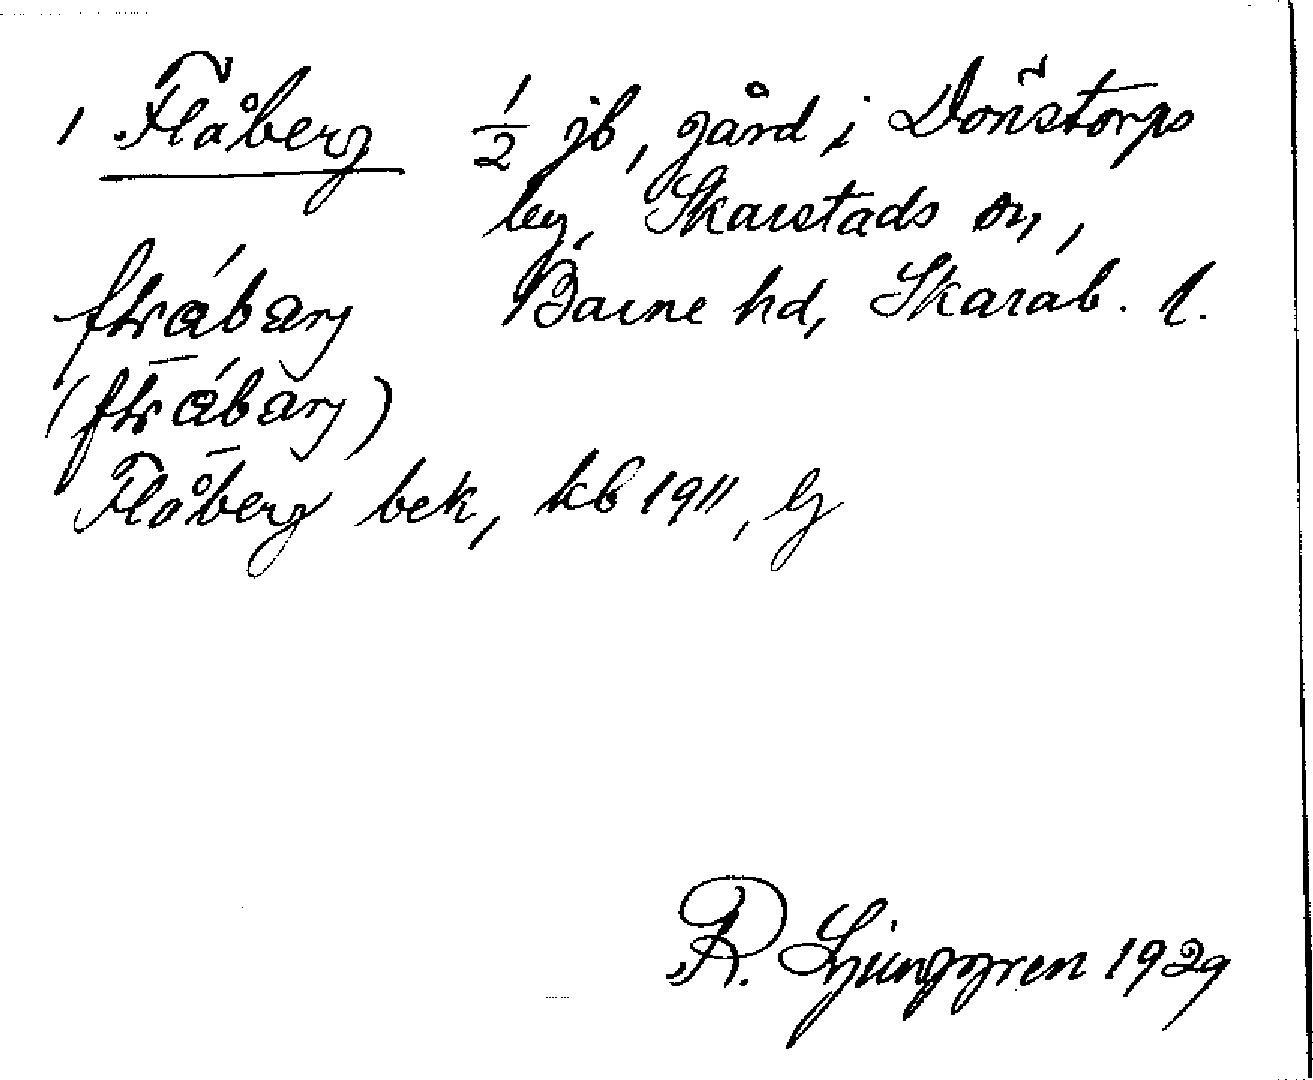 1 Flåberg ½ jb, gård i Donstorps
by, Skarstads sn,
Barne hd, Skarab. l.
Flåberg bek, kb 1911, lj
R. Ljunggren 1929